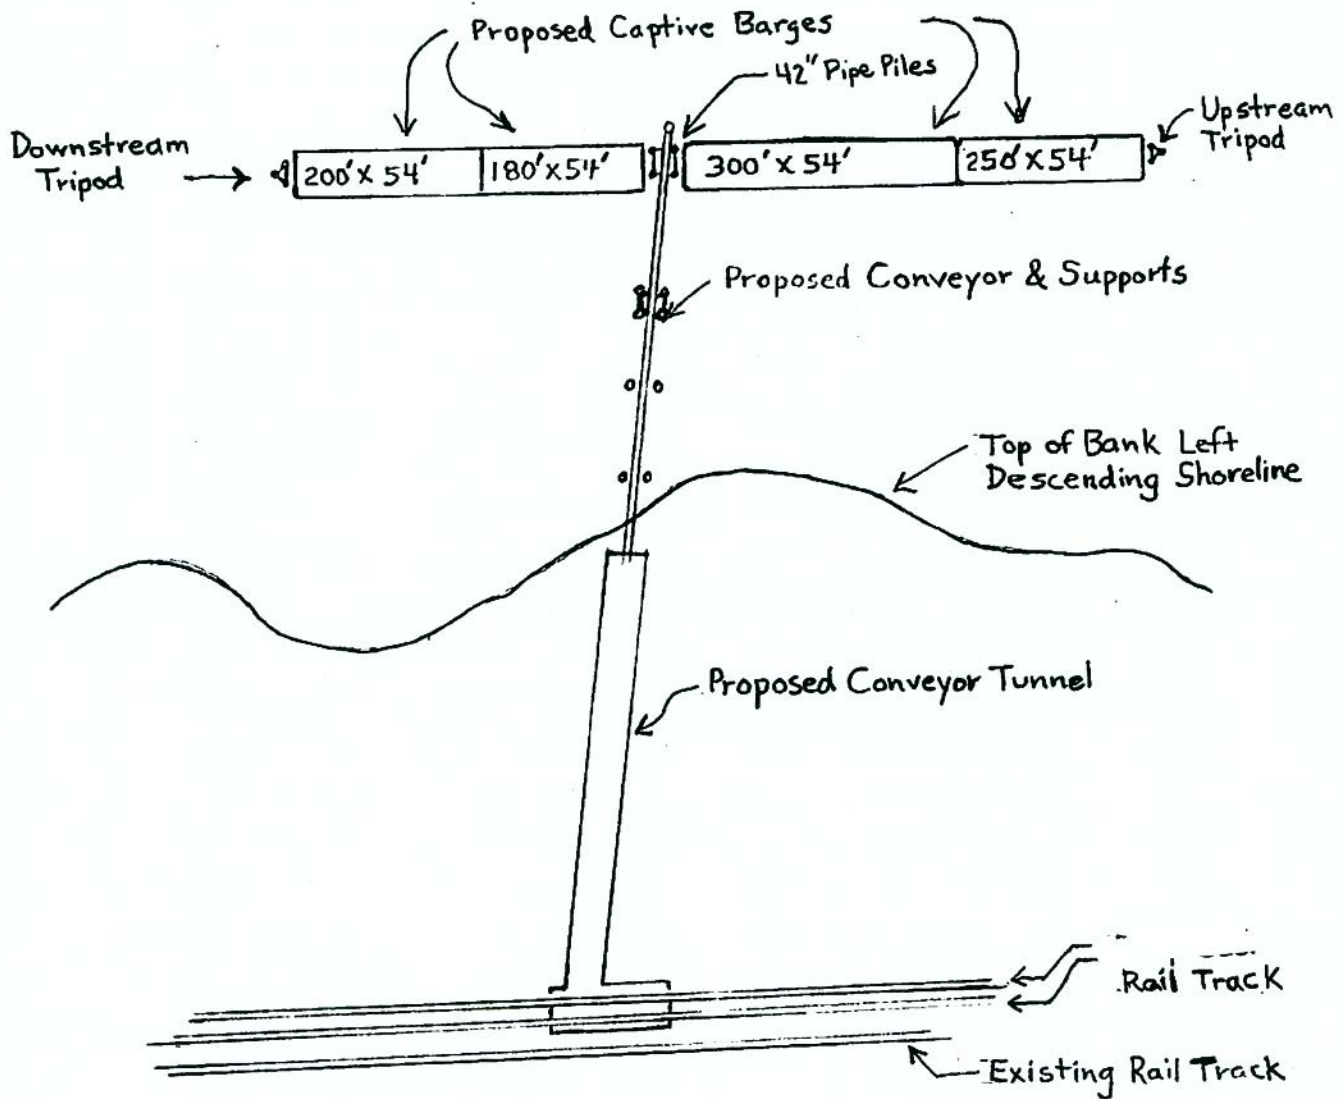 Proposed Captive Barges
42" Pipe Piles
Downstream
Tripod
Upstream
Tripod
200' X 54'
180' X 54'
300' X 54'
250' X 54'
Proposed Conveyor & Supports
Top of Bank Left
Descending Shoreline
Proposed Conveyor Tunnel
Rail Track
Existing Rail Track